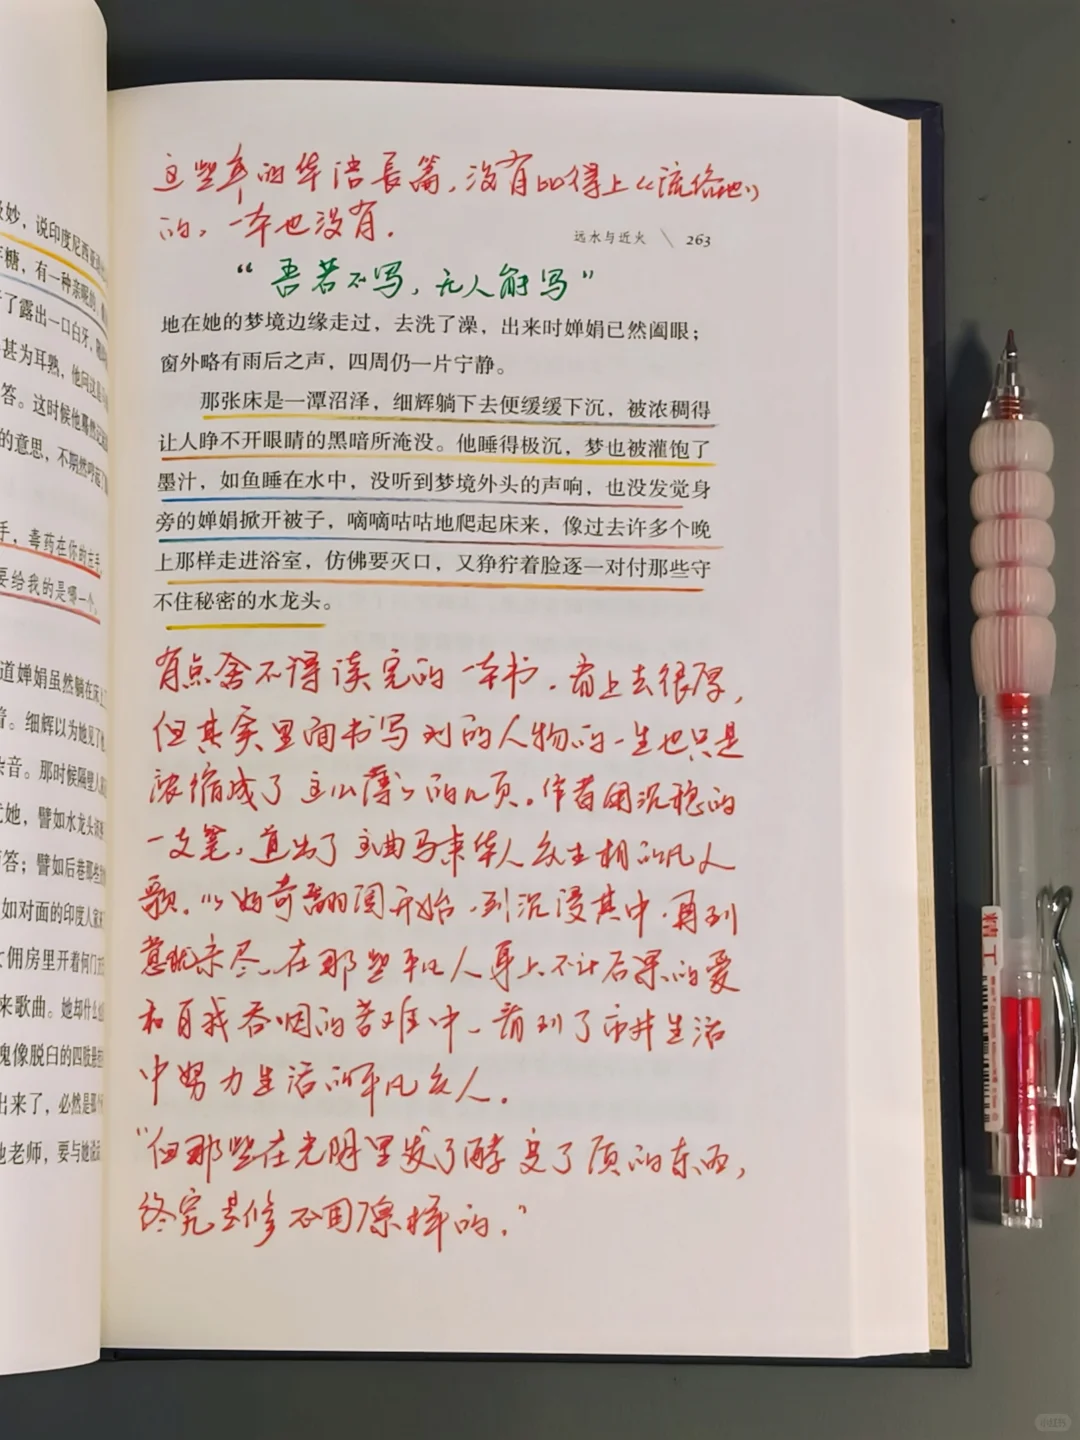 极妙，说印度尼西亚
糖，有一种亲昵的
了露出一口白牙，
甚为耳熟，他问这是
答。这时候他蓦然
的意思，不期然
手，毒药在你的左手，
要给我的是哪一个。
道婵娟虽然躺在床上
音。细辉以为她见了
杂音。那时候隔壁人家
扰她，譬如水龙头
答；譬如后巷那些
如对面的印度人家
女佣房里开着何门
来歌曲。她却什么
愧像脱臼的四肢
出来了，必然是那
他老师，要与她说
这些年的华语長篇，没有比得上《流俗地》
的，一本也没有．
远水与近火 \ 263
“吾若不写，无人能写”
地在她的梦境边缘走过，去洗了澡，出来时婵娟已然阖眼；
窗外略有雨后之声，四周仍一片宁静。
那张床是一潭沼泽，细辉躺下去便缓缓下沉，被浓稠得
让人睁不开眼睛的黑暗所淹没。他睡得极沉，梦也被灌饱了
墨汁，如鱼睡在水中，没听到梦境外头的声响，也没发觉身
旁的婵娟掀开被子，嘀嘀咕咕地爬起床来，像过去许多个晚
上那样走进浴室，仿佛要灭口，又狰狞着脸逐一对付那些守
不住秘密的水龙头。
有点舍不得读完的一本书．看上去很厚，
但其实里面书写到的人物的一生也只是
浓缩成了这么薄薄的几页。作者用沉稳的
一支笔，道出了一曲马来华人众生相的凡人
歌。从好奇翻阅开始，到沉浸其中，再到
意犹未尽。在那些平凡人身上不计后果的爱
和自我吞咽的苦难中，看到了市井生活
中努力生活的平凡众人．
“但那些在光阴里发了酵变了质的东西，
终究是修不回原样的．”
精工
小红书